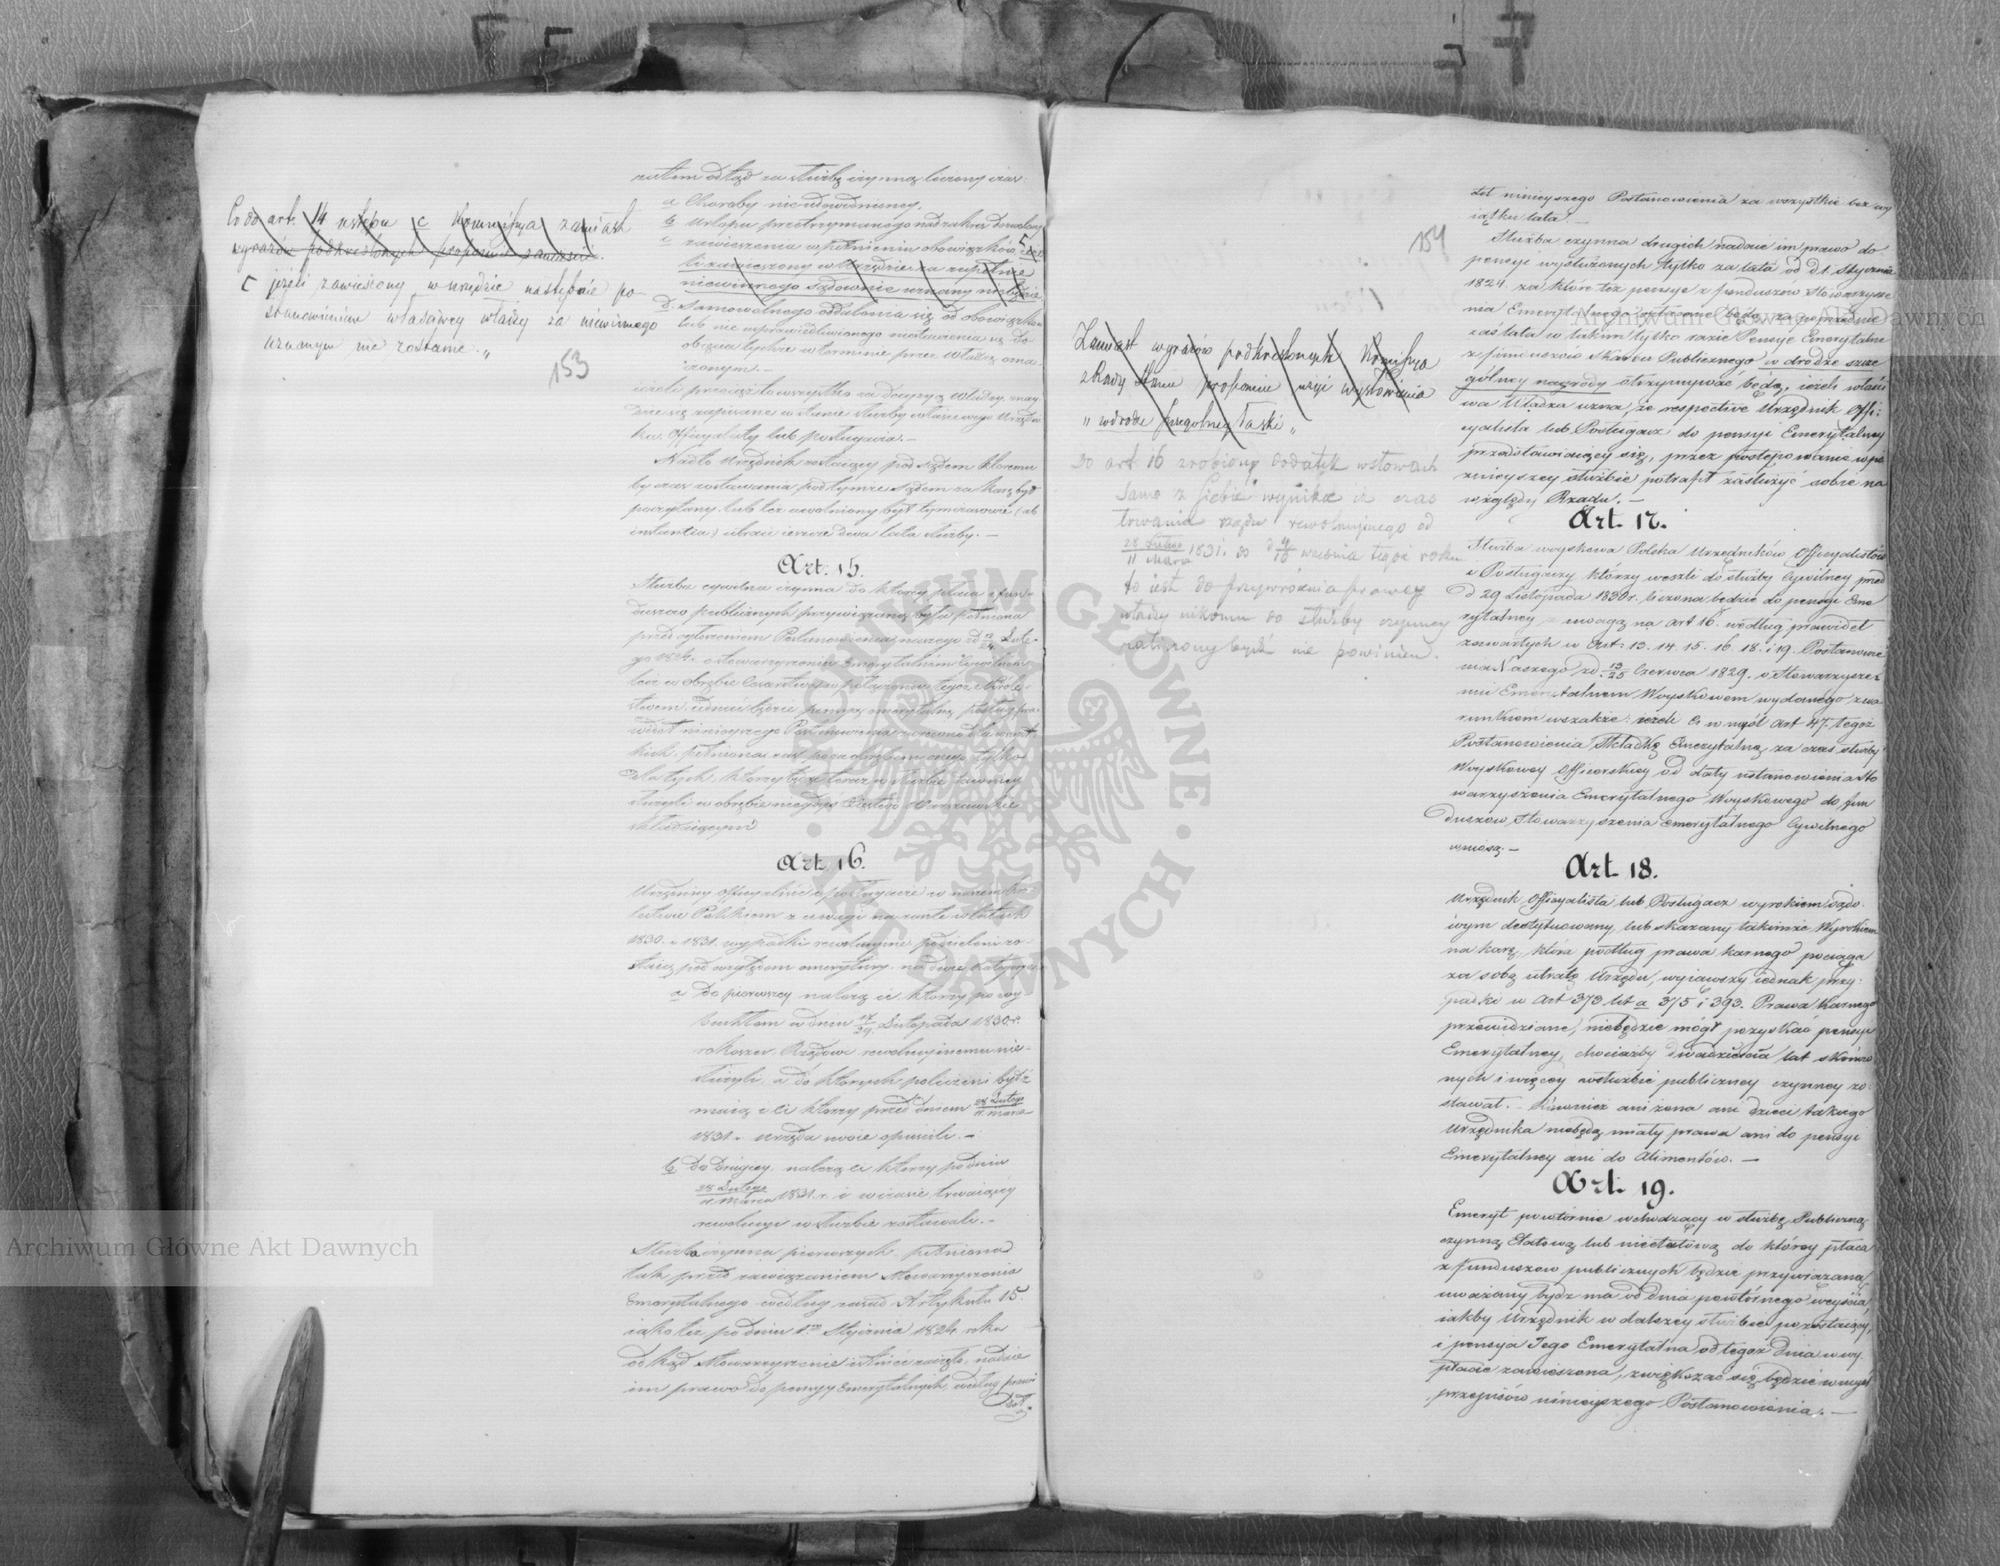 Co do art. 14 ustępu c Kommissya zamiast
wyrazów podkreślonych proponuje zamieścić.
c jeżeli zawieszony w urzędzie następnie po-
stanowieniem właściwej władzy za niewinnego
uznanym nie zostanie „
153
zatem odtąd za służbę czynną liczony czas:
a Choroby nieudowodnioney,
b Urlopu przetrzymanego nad zakres dozwolony
c zawieszenia w pełnieniu obowiązków, ieże-
li zawieszony w Urzędzie za zupełnie
niewinnego Sądownie uznany niebędzie
d Samowolnego oddalenia się od obowiązków
lub nie usprawiedliwionego niestawienia się do
objęcia tychże w terminie przez Władzę ozna-
czonym. —
ieżeli przecięż to wszystko za decyzyą Władzy, znay-
dzie się zapisane w stanie służby właściwego Urzędni-
ka, Officyalisty lub posługacza. —
Nadto Urzędnik zostaiący pod sądem któremu
by czas zostawania pod tymże Sądem za karę był
poczytany, lub też uwolniony był tymczasowie (ab
instantia) utraci ieszcze dwa lata służby. —
Art. 15.
Służba cywilna czynna do którey płaca z fun-
duszów publicznych przywiązaną była pełniona
przed ogłoszeniem Postanowienia naszego z d 12/24 Lute-
go 1824. o Stowarzyszeniu Emerytalnem Cywilnem
Art. 16.
Urzędnicy Officyaliści i posługacze w naszem Kró-
lestwie Polskiem z uwagi na zaszłe w latach
1830. i 1831. wypadki rewolucyine podzieleni zo-
staią pod względem emerytury, na dwie kategorye
a do pierwszey należą ci którzy po wy-
buchłym w dniu 17/29 Listopada 1830 r.
rokoszu, Rządowi rewolucyinemu nie-
służyli, a do których policzeni bydź
maią i ci którzy przed dniem 28 Lutego/11 Marca
1831 r. urzęda swoie opuścili. —
b do drugiey, należą ci którzy po dniu
28 Lutego/11 Marca 1831 r. i w czasie trwaiącey
rewolucyi w służbie zostawali. —
Służba czynna pierwszych, pełniona
tak przed zawiązaniem Stowarzyszenia
Emerytalnego według zasad Artykułu 15.
iako też po dniu 1go Stycznia 1824 roku
odkąd Stowarzyszenie istnieć zaczęło, nadaie
im prawo do pensyy Emerytalnych, według prawi-
deł
154
Zamiast wyrazów podkreślonych Komissya
z Rady Stanu proponuie użyć wysłowienia
„ w drodze szczególney łaski „
do art 16 zrobiony dodatek w słowach
samo z siebie wynika iż czas
trwania rządu rewolucyjnego od
28 Lutego/11 Marca 1831. do d 4/16 września tegoż roku
to jest do przywrócenia prawey
władzy nikomu do służby czynney
zaliczony bydź nie powinien.
deł ninieyszego Postanowienia za wszystkie bez wy-
iątku lata. —
Służba czynna drugich nadaie im prawo do
pensyi wysłużonych tylko za lata od d 1. Stycznia
1824. za które też pensye z funduszów Stowarzysze-
nia Emerytalnego opłacane będą, za poprzednie
zaś lata w takim tylko razie Pensye Emerytalne
z funduszów Skarbu Publicznego w drodze szcze-
gólney nagrody otrzymywać będą, ieżeli właści-
wa Władza uzna, że respective Urzędnik Offi-
cyalista lub Posługacz do pensyi Emerytalney
przedstawiaiący się, przez postępowanie w po-
źnieyszey służbie potrafił zasłużyć sobie na
względy Rządu. —
Art. 17.
Służba woyskowa Polska Urzędników Officyalistów
i Posługaczy którzy weszli do służby Cywilney przed
d 29 Listopada 1830 r. liczona będzie do pensyi Eme-
rytalney z uwagą na art 16. według prawideł
zawartych w Art. 13. 14. 15. 16. 18. i 19. Postanowie-
nia Naszego z d 13/25 Czerwca 1829. o Stowarzysze-
niu Emerytalnem Woyskowem wydanego z wa-
runkiem wszakże: ieżeli Ci w myśl Art 47. tegoż
Postanowienia, Składkę Emerytalną za czas służby
Woyskowey Officerskiey od daty ustanowienia Sto-
warzyszenia Emerytalnego Woyskowego do fun-
duszów Stowarzyszenia Emerytalnego Cywilnego
wniosą. —
Art. 18.
Urzędnik Officyalista lub Posługacz wyrokiem sądo-
wym destytuowany, lub skazany takimże Wyrokiem
na karę, która podług prawa karnego pociąga
za sobą utratę Urzędu, wyiąwszy iednak przy-
padki w Art 373 lit a 375 i 393. Prawa Karnego
przewidziane, niebędzie mógł pozyskać pensyi
Emerytalney, chociażby dwadzieścia lat skończo-
nych i więcey w służbie publiczney czynney zo-
stawał. — Również ani żona ani dzieci takiego
Urzędnika niebędą miały prawa ani do pensyi
Emerytalney ani do Alimentów. —
Art. 19.
Emeryt powtórnie wchodzący w służbę Publiczną
czynną Etatową lub nieetatową do którey płaca
z funduszów publicznych będzie przywiązaną,
uważany bydź ma od dnia powtórnego weyścia,
iakby Urzędnik w dalszey służbie pozostaiący,
i pensya Jego Emerytalna od tegoż dnia w wy-
płacie zawieszona, zwiększać się będzie w myśl
przepisów ninieyszego Postanowienia. —
Archiwum Główne Akt Dawnych
Archiwum Główne Akt Dawnych
ARCHIWUM GŁÓWNE AKT DAWNYCH